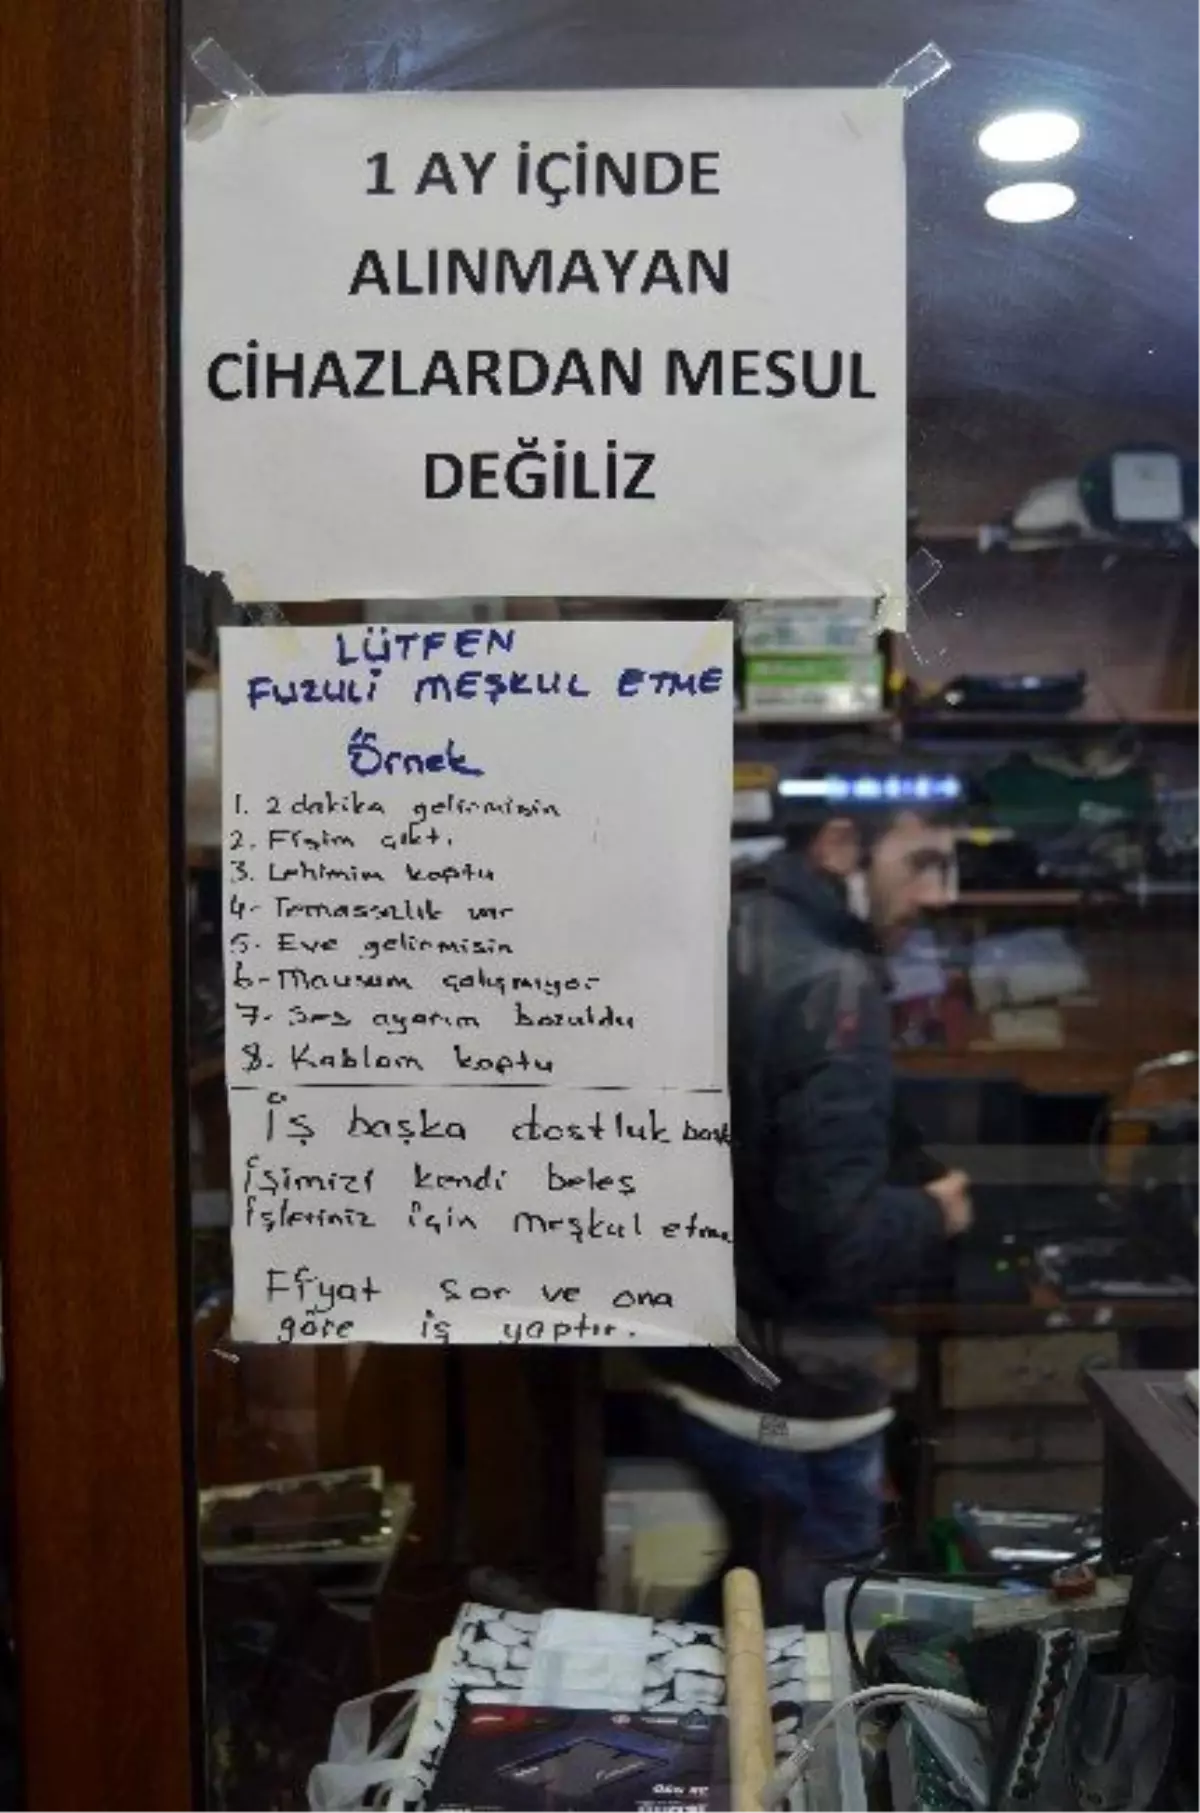 1 AY İÇİNDE
ALINMAYAN
CİHAZLARDAN MESUL
DEĞİLİZ
LÜTFEN
FUZULİ MEŞKUL ETME
Örnek
1. 2 dakika gelirmisin
2. Fişim çıktı
3. Lehimim koptu
4- Temassızlık var
5- Eve gelirmisin
6- Mausum çalışmıyor
7- Ses ayarım bozuldu
8. Kablom koptu
İş başka dostluk başk
İşimizi kendi beleş
İşleriniz için meşkul etme
Fiyat sor ve ona
göre iş yaptır.